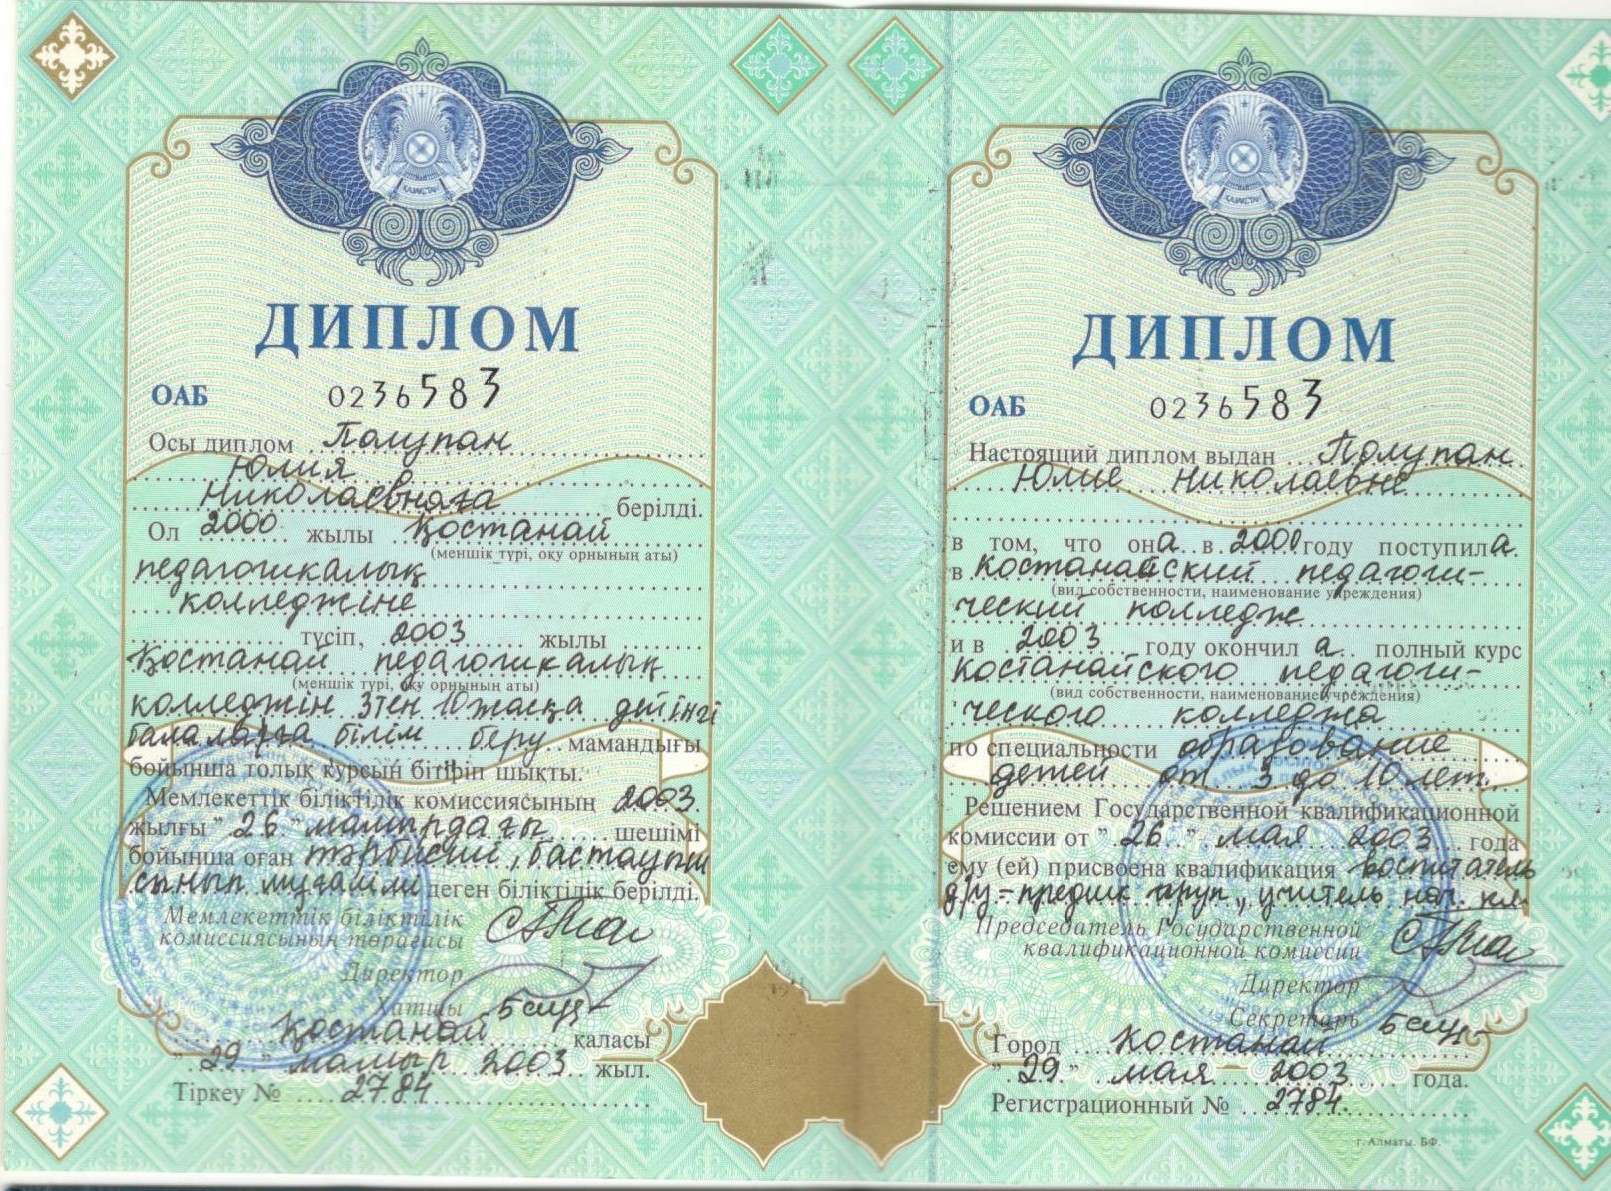 ҚАЗАҚСТАН
ДИПЛОМ
ОАБ 0236583
Осы диплом Полупан
Юлия
Николаевнаға берілді.
Ол 2000 жылы Қостанай
(меншік түрі, оқу орнының аты)
педагогикалық
колледжіне
түсіп, 2003 жылы
Қостанай педагогикалық
(меншік түрі, оқу орнының аты)
колледжін 3тен 10 жасқа дейінгі
балаларға білім беру мамандығы
бойынша толық курсын бітіріп шықты.
Мемлекеттік біліктілік комиссиясының 2003
жылғы "26" мамырдағы шешімі
бойынша оған тәрбиеші, бастауыш
сынып мұғалімі деген біліктілік берілді.
Мемлекеттік біліктілік
комиссиясының төрағасы
Директор
Хатшы
Қостанай қаласы
"29" мамыр 2003 жыл.
Тіркеу № 2784
ҚАЗАҚСТАН
ДИПЛОМ
ОАБ 0236583
Настоящий диплом выдан Полупан
Юлие Николаевне
в том, что она в 2000 году поступила
в Костанайский педагоги-
(вид собственности, наименование учреждения)
ческий колледж
и в 2003 году окончил а полный курс
Костанайского педагоги-
(вид собственности, наименование учреждения)
ческого колледжа
по специальности образование
детей от 3 до 10 лет.
Решением Государственной квалификационной
комиссии от "26" мая 2003 года
ему (ей) присвоена квалификация воспитатель
д/у - предшк. груп., учитель нач. кл.
Председатель Государственной
квалификационной комиссии
Директор
Секретарь
Город Костанай
"29" мая 2003 года.
Регистрационный № 2784.
г. Алматы. БФ.